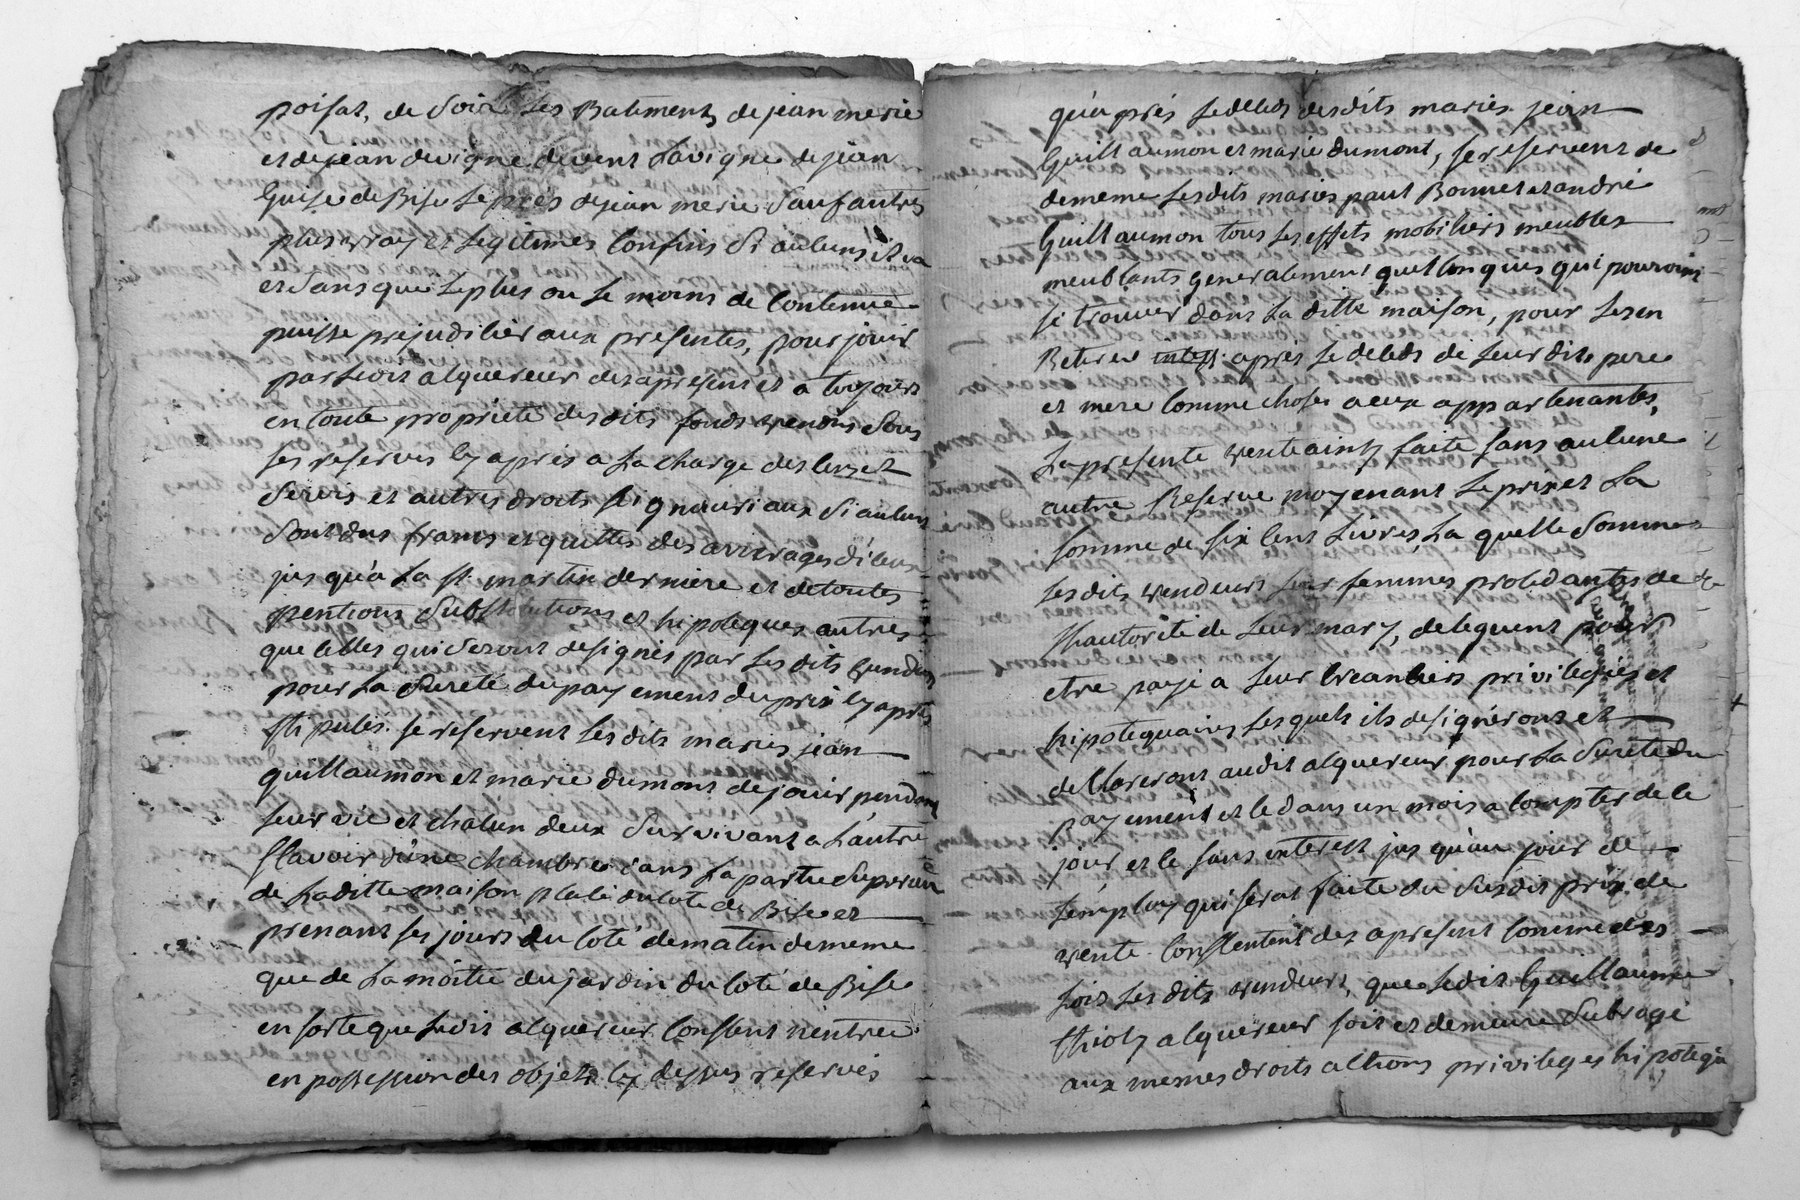 poisat, de soir les Batiments de jean merie
et de jean devigne devent Lavigne de jean
Guise de Bise le prés de jean merie Sauf autres
plus vray et legitimes Confins Si aulcuns il va
et Sans que le plus ou le moins de Contenue
puisse prejudicier aux presentes, pour jouir
par ledit acquereur des apresent et a toujours
en toute propriété desdits fonds vendus Sous
les reserves cy après a la charge des
Servis et autres droits Seigneuriaux Si aulcuns
Sont dus francs et quittes des arrerages d'iceux
jus qu'a La st. martin derniere et de toutes
pentions Substitutions et hipoteques autres
que celles qui Seront designés par les dits vendeurs
pour La Sureté du payement du prix cy après
stipulés. se reservent les dits mariés jean
guillaumon et marie dumont de jouir pendant
leur vie et chacun deux Survivant a L'autre
Scavoir d'une chambre dans La partie Superieure
de Laditte maison placée du coté de Bise et
prenant ses jours du coté de matin de meme
que de La moitié du jardin du coté de Bise
en sorte que ledit acquereur Consent n'entrer
en possession des objets cy dessus reservés
qu'après le deceds desdits mariés jean
Guillaumon et marie dumont, se reservent de
de meme lesdits mariés paul Bonnet et andrée
Guillaumon tous les effets mobiliers meubles
meublants generalement quelconques qui pouroint
se trouver dans La ditte maison, pour les en
Retirer après le deceds de leur dits pere
et mere Comme choses a eux appartenantes,
La presente vente ainsy faite sans aulcune
autre Reserve moyenant le prix et La
somme de six Cent Livres, La quelle Somme
lesdits vendeurs leur femmes procedantes de
l'hautorité de leur mary, deleguent pour
etre payé a leur Creanciers privilegiés et
hipotequaires lesquels ils designéront et
declareront audit acquereur pour La Sureté du
payement et ce dans un mois a Compter de ce
jour et ce sans interest jus qu'au jour de
L'employ qui serat faite du Susdit prix de
vente. Consentent des apresent Comme des
Lors les dits vendeurs, que ledit Guillaume
thioly acquereur soit et demeure Subrogé
aux memes droits actions privileges hipoteq